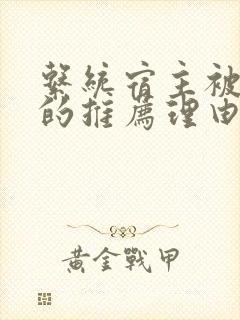 繫統宿主被
的推薦理由
黃金戰甲